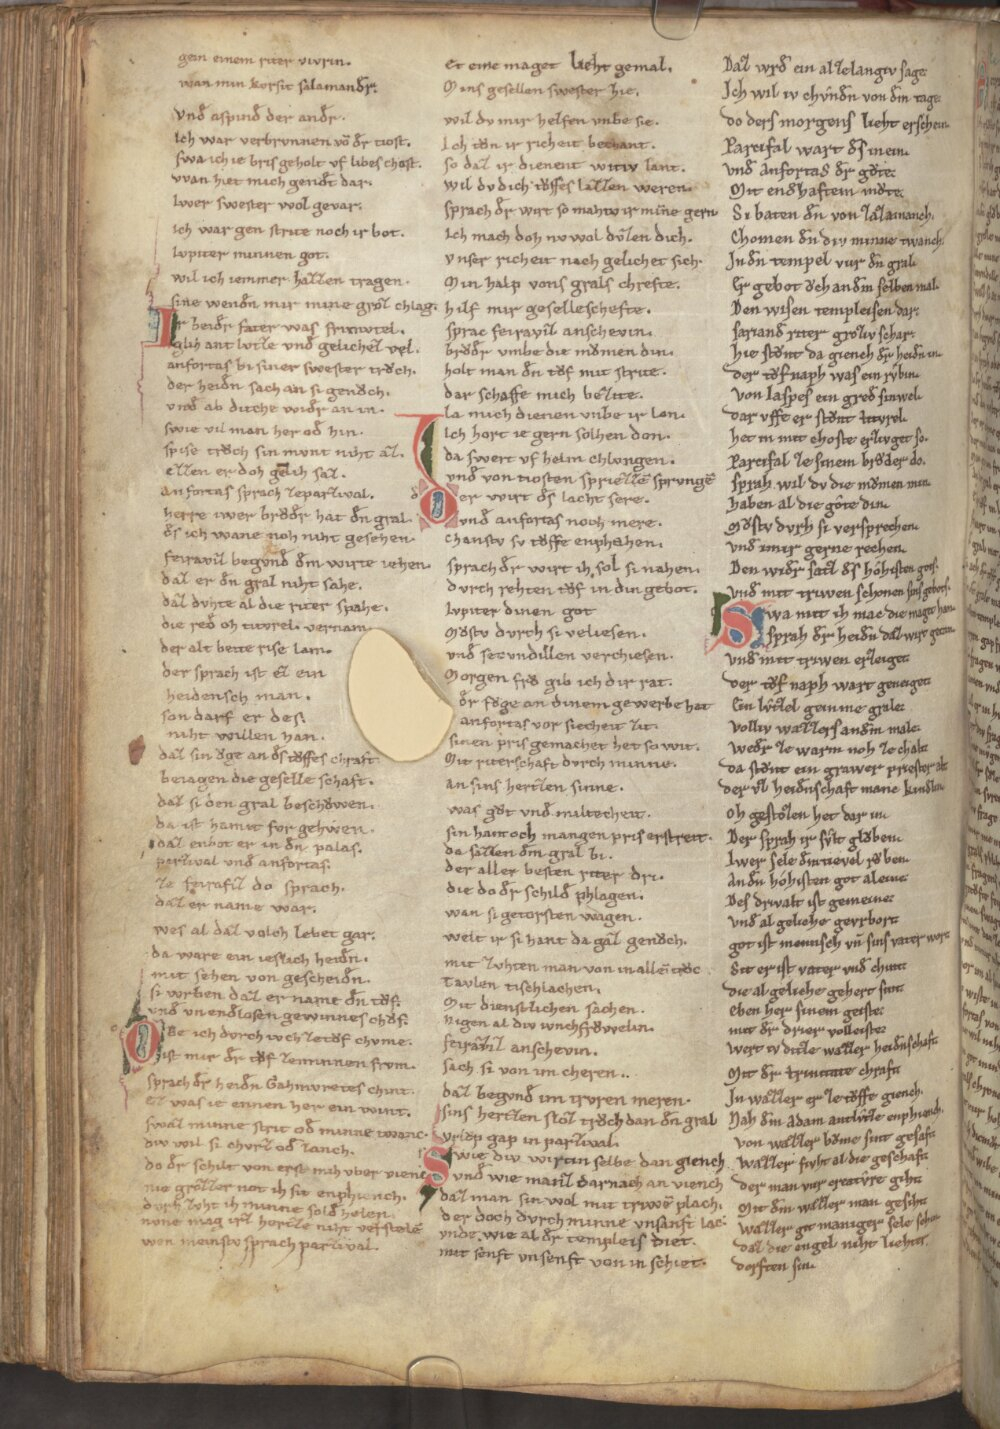 gein einem riter vivrin.
wan min kursit salamander.
vnd aspind der ander.
Ich war verbrvnnen vō dr tiost.
swa ich ie bris geholt vf libes chost.
wan hiet mich genōt dar.
Iwer swester wol gevar.
ich war gen strite noch ir bot.
Ivpiter minnen got.
wil ich iemmer hazzen tragen.
sine wendn mir mine groz chlag.
Ir beidr fater was frimvtel.
glih antlvzze vnd gelichez vel.
anfortas bi siner swester trōch.
der heidn sach an si genōch.
vnd ab dicche widr an in.
swie vil man her od hin.
spise trōch sin mvnt niht az.
ezzen er doh gelich saz.
anfortas sprach zeparzival.
herre iwer brōdr hat dn gral.
ds ich wane noh niht gesehen.
feiravil begvnd dm wirte iehen.
daz er dn gral niht sahe.
daz dvhte al die riter spahe.
die red oh titvrel vernam
der alt bette rise lam.
der sprach ist ez ein
heidensch man.
son darf er des
niht willen han.
daz sin ōge an ds tōffes chraft.
beiagen die geselle schaft.
daz si den gral beschōwen.
da ist hamit for gehwen.
daz enbot er in dn palas.
parzival vnd anfortas.
ze feirafiz do sprach.
daz er name war.
wes al daz volch lebet gar.
da ware ein ieslich heidn.
mit sehen von gescheidn.
si wrben daz er name dn tōf.
vnd vnendlosen gewinnes chōf.
Obe ich dvrch ivch ze tōf chvme.
ist mir dr tōf zeminnen frvm.
sprach dr heidn Gahmvretes chint.
ez was ie ennen her ein wint.
swaz minne strit od minne twanc.
div wil si chvrz od lanch.
do dr schilt von erst mih vber viench
nie grōzzer not ih sit enphiench.
dvrh zvht ih minne sold helen.
nvne mag irz hertze niht verstelē
wen meinstv sprach parzival.
et eine maget lieht gemal.
Mins gesellen swester hie.
wil dv mir helfen vmbe sie.
Ich tōn ir richeit bechant.
so daz ir dienent witiv lant.
wil dv dich tōffes lazzen weren.
sprach dr wirt so mahtv ir mīne gern
Ich mach doh nv wol dvzen dich.
vnser richeit nach gelichet sich.
Min halp vons grals chrefte.
hilf mir geselleschefte.
sprac feiraviz anschevin.
brōdr vmbe die mōmen din.
holt man dn tōf mit strite.
dar schaffe mich bezite.
la mich dienen vmbe ir lon.
Ich hort ie gern solhen don.
da swert vf helm chlvngen.
vnd von tiosten sprizzē sprvngē
Der wirt ds lacht sere.
vnd anfortas noch mere.
chanstv sv tōffe enphahen.
sprach dr wirt ih sol si nahen.
dvrch rehten tōf in din gebot.
Ivpiter dinen got
mōstv dvrch si veliesen.
vnd secvndillen verchiesen.
Morgen frō gib ich dir rat.
dr fōge an dinem gewerbe hat
anfortas vor siecheit zit.
sinen pris gemachet het so wit.
Mit riterschaft dvrch minne.
an sins hertzen sinne.
was gōt vnd miltecheit.
sin hant och mangen pris erstreit.
da sazzen dm gral bi.
der aller besten riter dri.
die do dr schild phlagen.
wan si getorsten wagen.
welt ir si hant da gaz genōch.
mit zvhten man von in allē trōc
Tavlen tischlachen.
Mit dienstlichen sachen.
Nigen al div ivnchfrōwelin.
feiraviz anschevin.
sach si von im cheren..
daz begvnd im trvren meren.
sins hertzen sloz trōch dan dn gral
vrlop gap in parzival.
Swie div wirtin selbe dan giench
vnd wie manz darnach an viench
daz man sin wol mit triwē plach.
der doch dvrch minne vnsanft lac.
vnde wie al dr templeis diet.
mit senft vnsenft von in schiet.
Daz wrd ein al zelangiv sage.
Ich wil iv chvndn von dm tage.
do ders morgens lieht erschein.
Parcifal wart ds in ein.
vnd Anfortas dr gōte.
Mit endhaftem mōte.
Si baten dn von zazamanch.
Chomen dn div minne twanch.
In dn tempel vur dn gral.
Er gebot ōch an dm selben mal.
Den wisen templeisen dar.
sariand riter groziv schar.
hie stōnt da giench dr heidn in.
der tōfnaph was ein rvbin.
von Iaspes ein gred sinwel.
dar vffe er stōnt titvrel.
het in mit choste erzivget so.
Parcifal ze sinem brōder do.
sprah. wil dv die mōmen min.
haben al die gōte din.
Mōstv dvrh si versprechen.
vnd immer gerne rechen.
Den widr satz ds hōhisten gots.
vnd mit triwen schonen sins gebots.
Swa mit ih mac die magt han.
sprah dr heidn daz wirt getan.
vnd mit triwen erzeiget.
der tōfnaph wart geneiget.
Ein lvtzel geinme grale.
volliv wazzers an dm male.
wedr ze warm noh ze chalt.
da stōnt ein grawer priester alt.
der vz heidnschaft mane kindlin
Oh gestōzen het dar in.
Der sprah ir svlt glōben.
Iwer sele dm tievel rōben.
An dn hōhisten got aleine.
Des drivalt ist gemeine.
vnd al geliche gevrbort.
got ist mennisch vn sins vater wort.
Sit er ist vater vnd chint.
die al geliche gehert sint.
eben her sinem geiste.
mit dr drier volleiste.
wert iv ditze wazzer heidnschaft.
Mit dr trinitate chraft.
In wazzer er ze tōffe giench.
Nah dm adam antlvtze enphiench.
von wazzer bōme sint gesaft.
wazzer frvht al die geschaft.
der man vur creatvre giht.
Mit dm wazzer man gesiht.
wazzer git maniger sele schin.
daz die engel niht liehter
dorften sin.